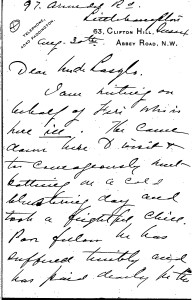 97. Arundel Rd
Littlehampton
Sussex
TELEPHONE,
PADDINGTON.
63, CLIFTON HILL,
ABBEY ROAD, N.W.
Aug. 30th
Dear
I am writing on
behalf of who is
here ill. He came
down here & went
courageously
bathing on a cold
blustering day and
took a frightful chill.
Poor fellow he has
suffered terribly and
has paid dearly for the